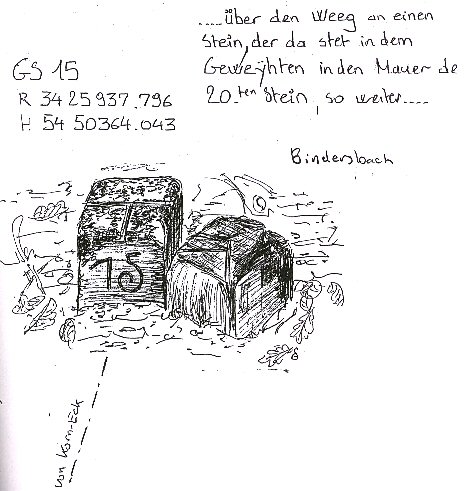 .....über den Weeg an einen
Stein, der da stet in dem
Geweÿhten in den Mauer de
20.ten Stein, so weiter....
GS 15
R 34 25 937.796
H 54 50364.043
Bindersbach
15
von Korn-Eck